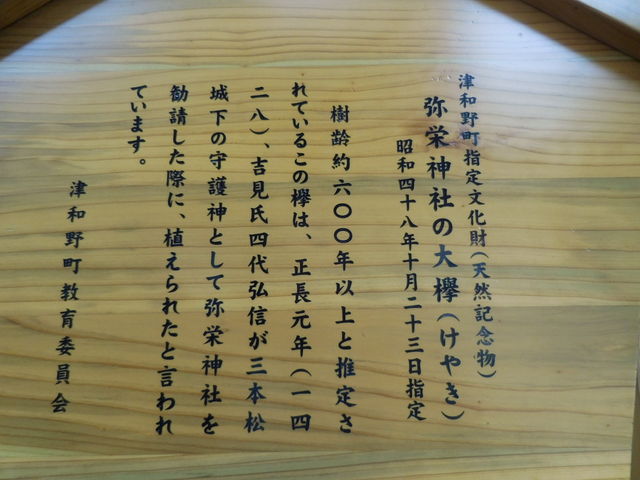 津和野町指定文化財(天然記念物)
弥栄神社の大欅(けやき)
昭和四十八年十月二十三日指定
樹齢約六〇〇年以上と推定さ
れているこの欅は、正長元年(一四
二八)、吉見氏四代弘信が三本松
城下の守護神として弥栄神社を
勧請した際に、植えられたと言われ
ています。
津和野町教育委員会